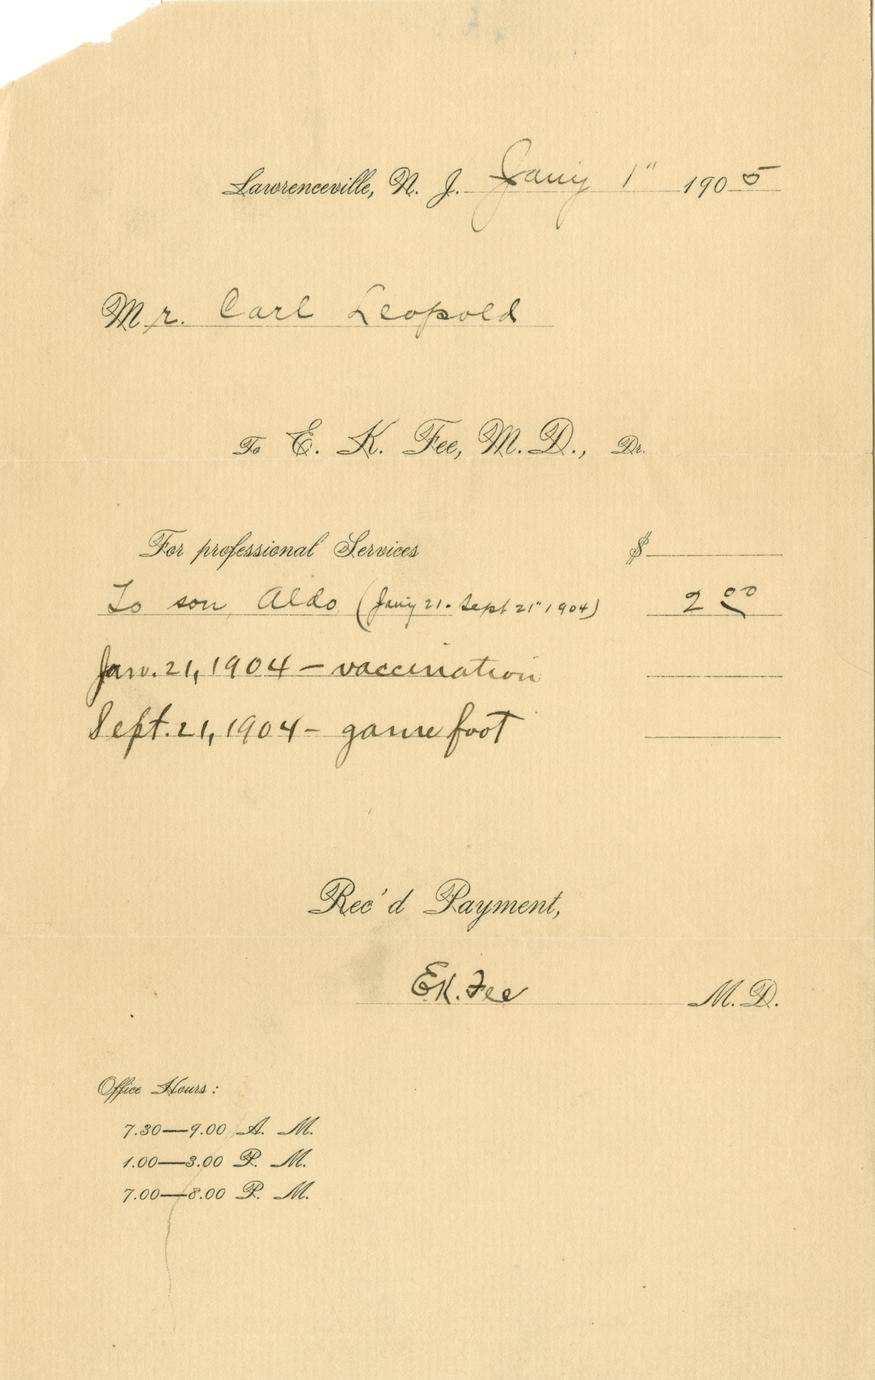 Lawrenceville, N. J. Jany 1" 1905
Mr. Carl Leopold
To E. K. Fee, M. D., Dr.
For professional Services $
To son, Aldo (Jany 21 - Sept 21" 1904) 2 00
Jan. 21, 1904 – vaccination
Sept. 21, 1904 – game foot
Rec'd Payment,
E.K. Fee M. D.
Office Hours:
7.30—9.00 A. M.
1.00—3.00 P. M.
7.00—8.00 P. M.